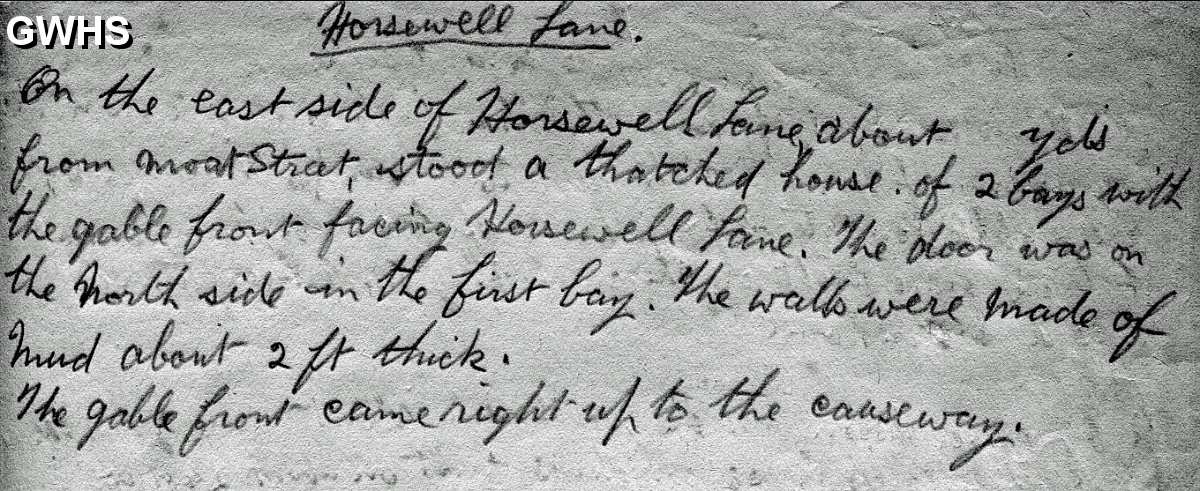 GWHS
Horsewell Lane.
On the east side of Horsewell Lane, about yds
from Moat Street, stood a thatched house. of 2 bays with
the gable front facing Horsewell Lane. The door was on
the North side in the first bay. The walls were made of
Mud about 2 ft thick.
The gable front came right up to the causeway.